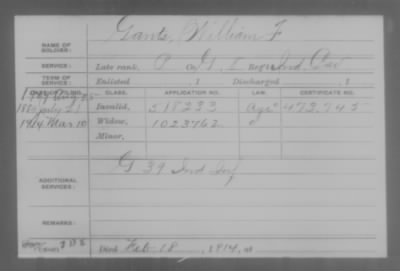 Gantz, William F
NAME OF SOLDIER:
SERVICE: Late rank, P Co. G, Reg't Ind Cav
TERM OF SERVICE: Enlisted , 1 Discharged , 1
DATE OF FILING. CLASS. APPLICATION NO. LAW. CERTIFICATE NO.
Invalid, 518233 472.745
1914 Mar. 10 Widow, 1023762
Minor,
ADDITIONAL SERVICES: G 39 Ind Inf
REMARKS:
Died Feb 18, 1914, at